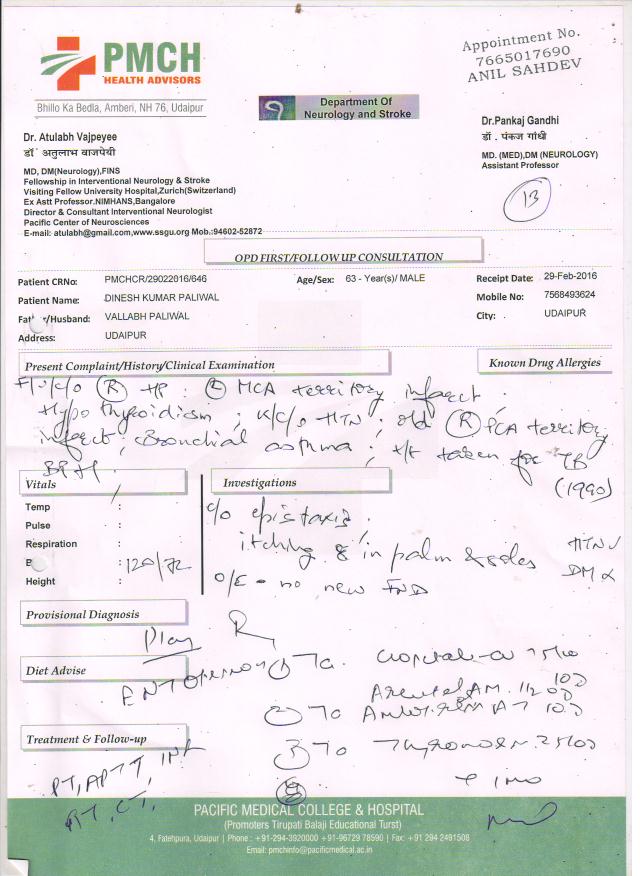 PMCH
HEALTH ADVISORS
Bhillo Ka Bedla, Amberi, NH 76, Udaipur
Appointment No.
7665017690
ANIL SAHDEV
Department Of
Neurology and Stroke
Dr. Atulabh Vajpeyee
डॉ अतुलाभ वाजपेयी
MD, DM(Neurology),FINS
Fellowship in Interventional Neurology & Stroke
Visiting Fellow University Hospital,Zurich(Switzerland)
Ex Astt Professor.NIMHANS,Bangalore
Director & Consultant Interventional Neurologist
Pacific Center of Neurosciences
E-mail: atulabh@gmail.com,www.ssgu.org Mob.:94602-52872
Dr.Pankaj Gandhi
डॉ . पंकज गांधी
MD. (MED),DM (NEUROLOGY)
Assistant Professor
13
OPD FIRST/FOLLOW UP CONSULTATION
Patient CRNo: PMCHCR/29022016/646 Age/Sex: 63 - Year(s)/ MALE Receipt Date: 29-Feb-2016
Patient Name: DINESH KUMAR PALIWAL Mobile No: 7568493624
/Husband: VALLABH PALIWAL City: UDAIPUR
Address: UDAIPUR
Present Complaint/History/Clinical Examination Known Drug Allergies
(R) HP : (L) MCA territory infarct
Hypothyroidism ; K/C/o HTN ; old (R) PCA territory
infarct ; Bronchial asthma ; taken for TB
BPH . (1990)
Vitals Investigations
Temp :
Pulse :
Respiration :
B : 120/72
Height :
c/o epistaxis .
itching in palm & soles HTN
O/E - no new FND DM
Provisional Diagnosis
Plan R
Diet Advise
ENT Opinion
Treatment & Follow-up
PT, APTT, INR
BT, CT,
PACIFIC MEDICAL COLLEGE & HOSPITAL
(Promoters Tirupati Balaji Educational Turst)
4, Fatehpura, Udaipur | Phone : +91-294-3920000 +91-96729 78590 | Fax: +91 294 2491508
Email: pmchinfo@pacificmedical.ac.in